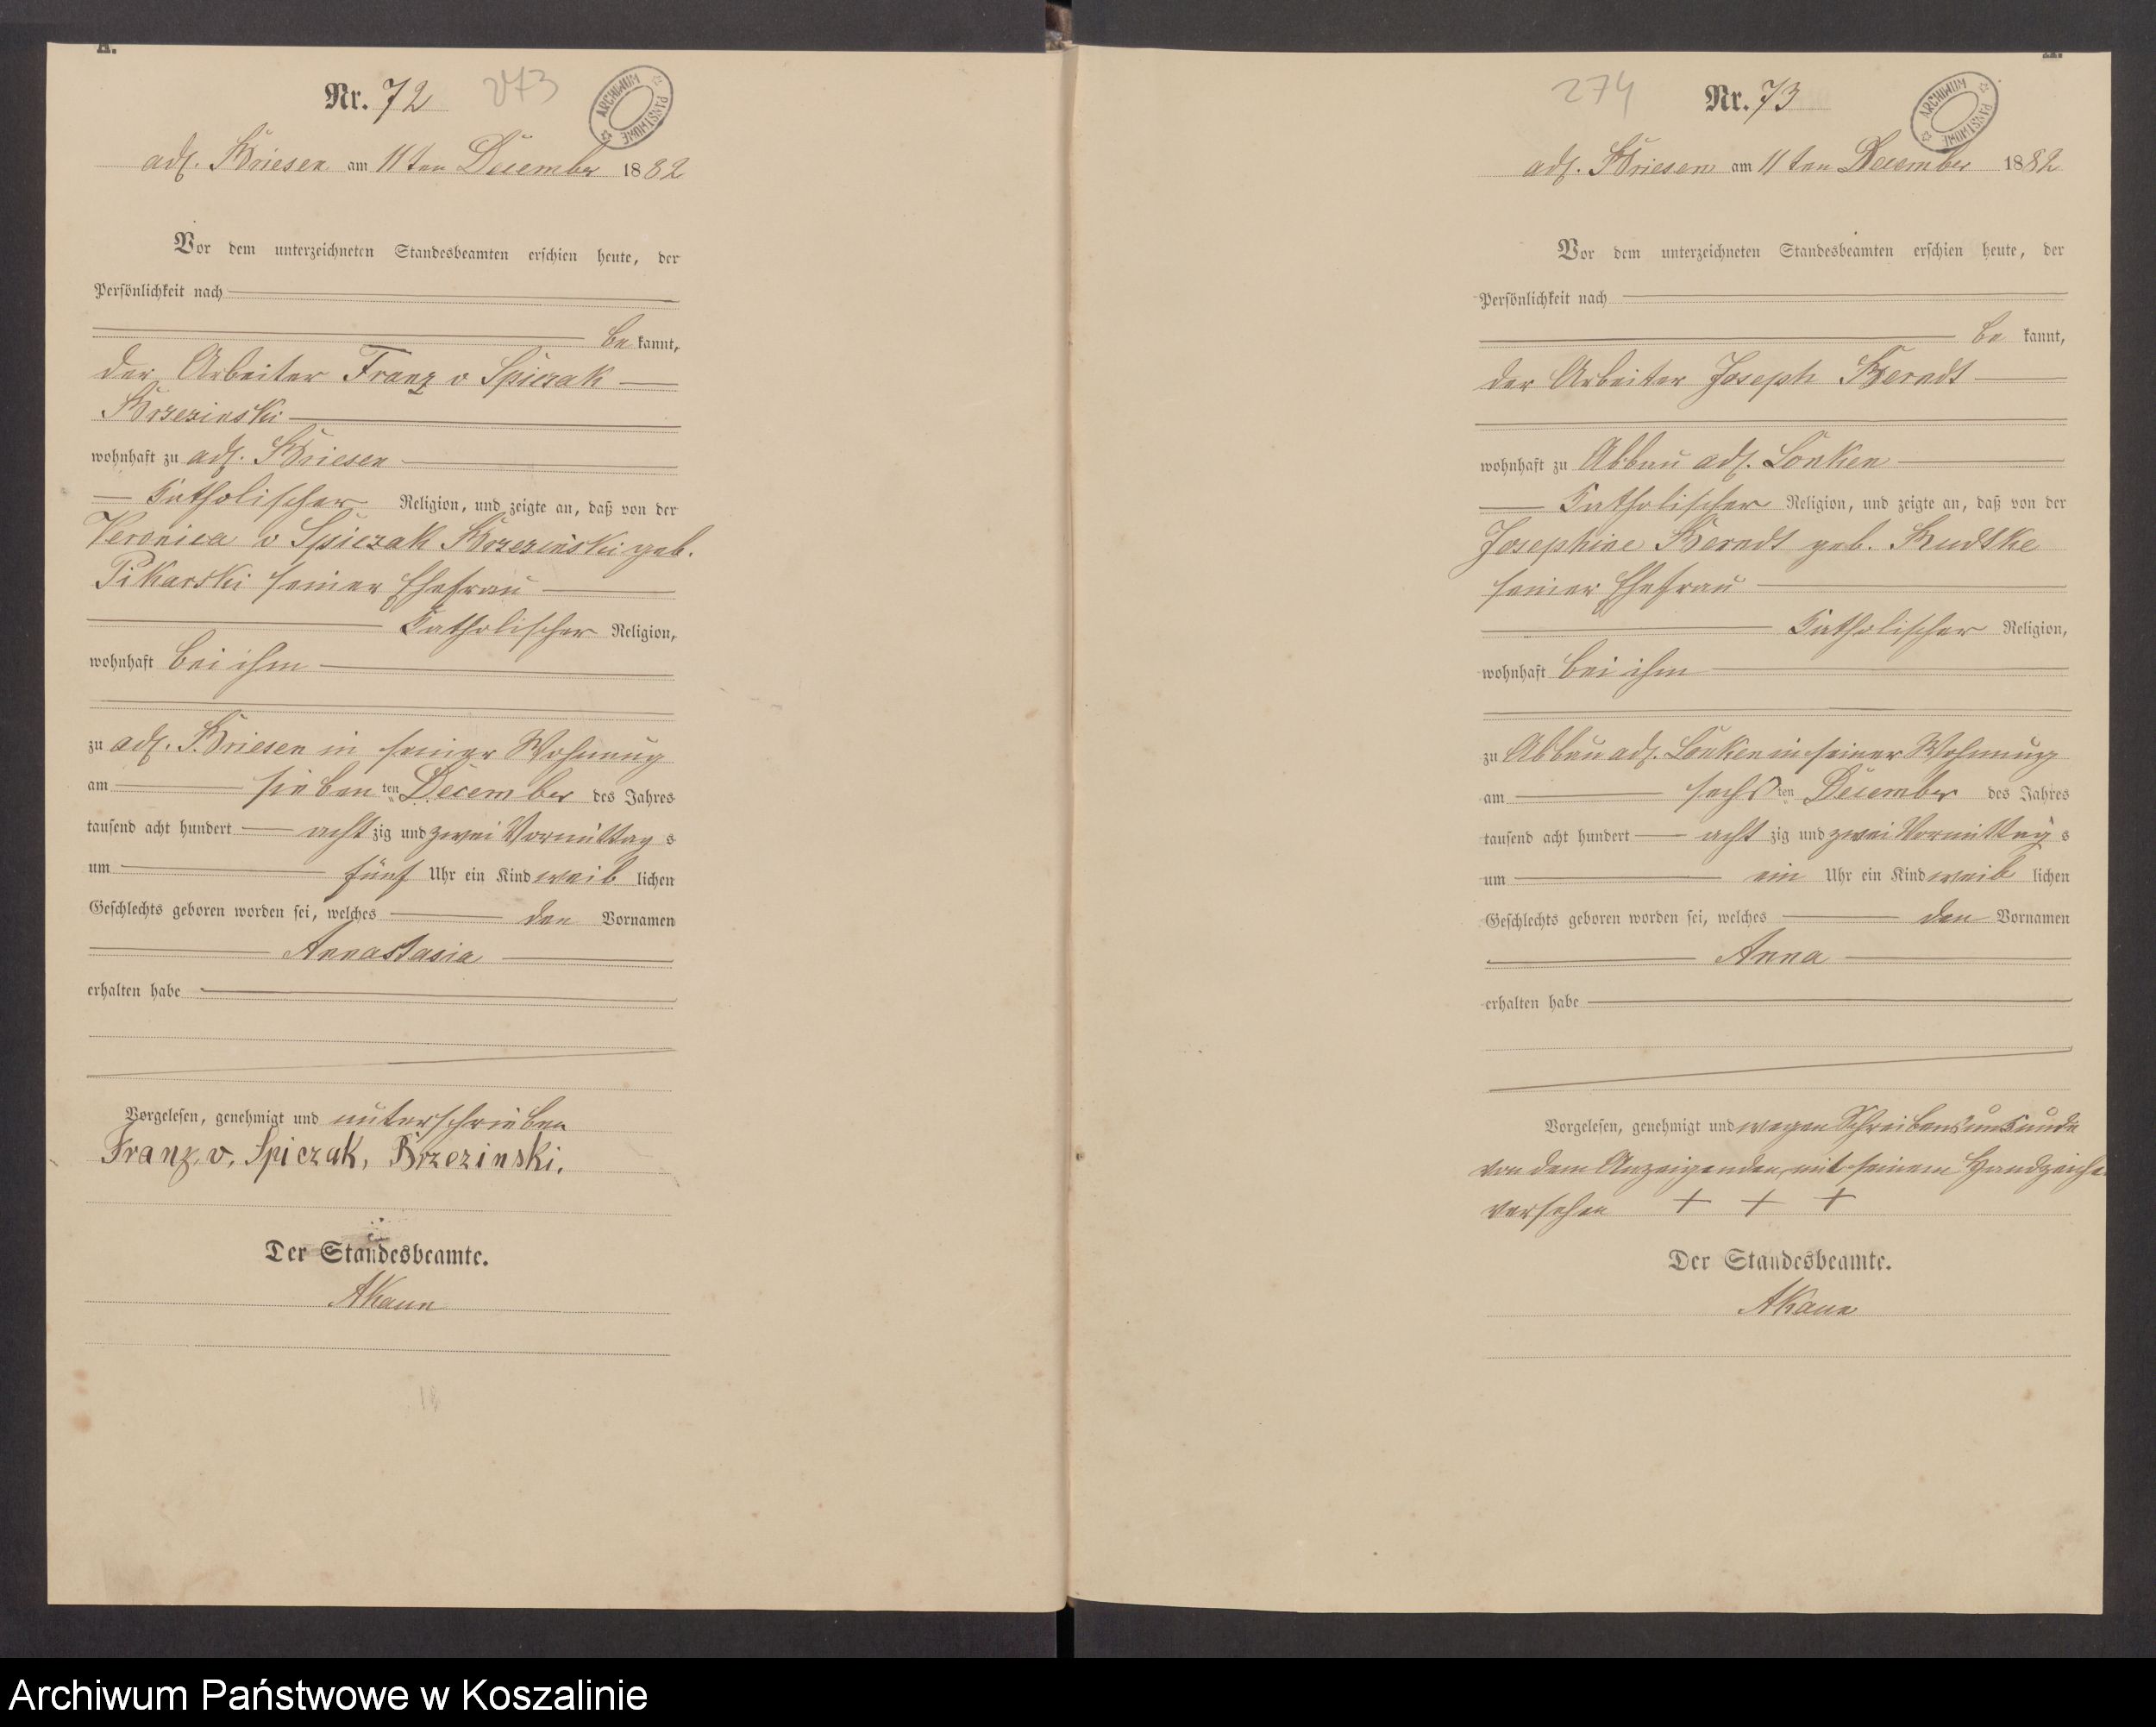 A.
Nr. 72 273
ARCHIWUM PAŃSTWOWE
adl. Briesen am 11 ten December 1882
Vor dem unterzeichneten Standesbeamten erschien heute, der
Persönlichkeit nach
be kannt,
der Arbeiter Franz v Spiczak
Brzezinski
wohnhaft zu adl. Briesen
Katholischer Religion, und zeigte an, daß von der
Veronica v Spiczak Brzezinski geb.
Pikarski seiner Ehefrau
Katholischer Religion,
wohnhaft bei ihm
zu adl. Briesen in seiner Wohnung
am sieben ten December des Jahres
tausend acht hundert acht zig und zwei Vormittag s
um fünf Uhr ein Kind weib lichen
Geschlechts geboren worden sei, welches den Vornamen
Annastasia
erhalten habe
Vorgelesen, genehmigt und unterschrieben
Franz. v. Spiczak, Brzezinski.
Der Standesbeamte.
AKaun
18
274 Nr. 73
ARCHIWUM PAŃSTWOWE
adl. Briesen am 11 ten December 1882
Vor dem unterzeichneten Standesbeamten erschien heute, der
Persönlichkeit nach
be kannt,
der Arbeiter Joseph Berndt
wohnhaft zu Abbau adl. Lonken
Katholischer Religion, und zeigte an, daß von der
Josephine Berndt geb. Rudtke
seiner Ehefrau
Katholischer Religion,
wohnhaft bei ihm
zu Abbau adl. Lonken in seiner Wohnung
am sechs ten December des Jahres
tausend acht hundert acht zig und zwei Vormittag s
um ein Uhr ein Kind weib lichen
Geschlechts geboren worden sei, welches den Vornamen
Anna
erhalten habe
Vorgelesen, genehmigt und wegen Schreibensunkunde
von dem Anzeigenden mit seinem Handzeichen
versehen + + +
Der Standesbeamte.
AKaun
Archiwum Państwowe w Koszalinie